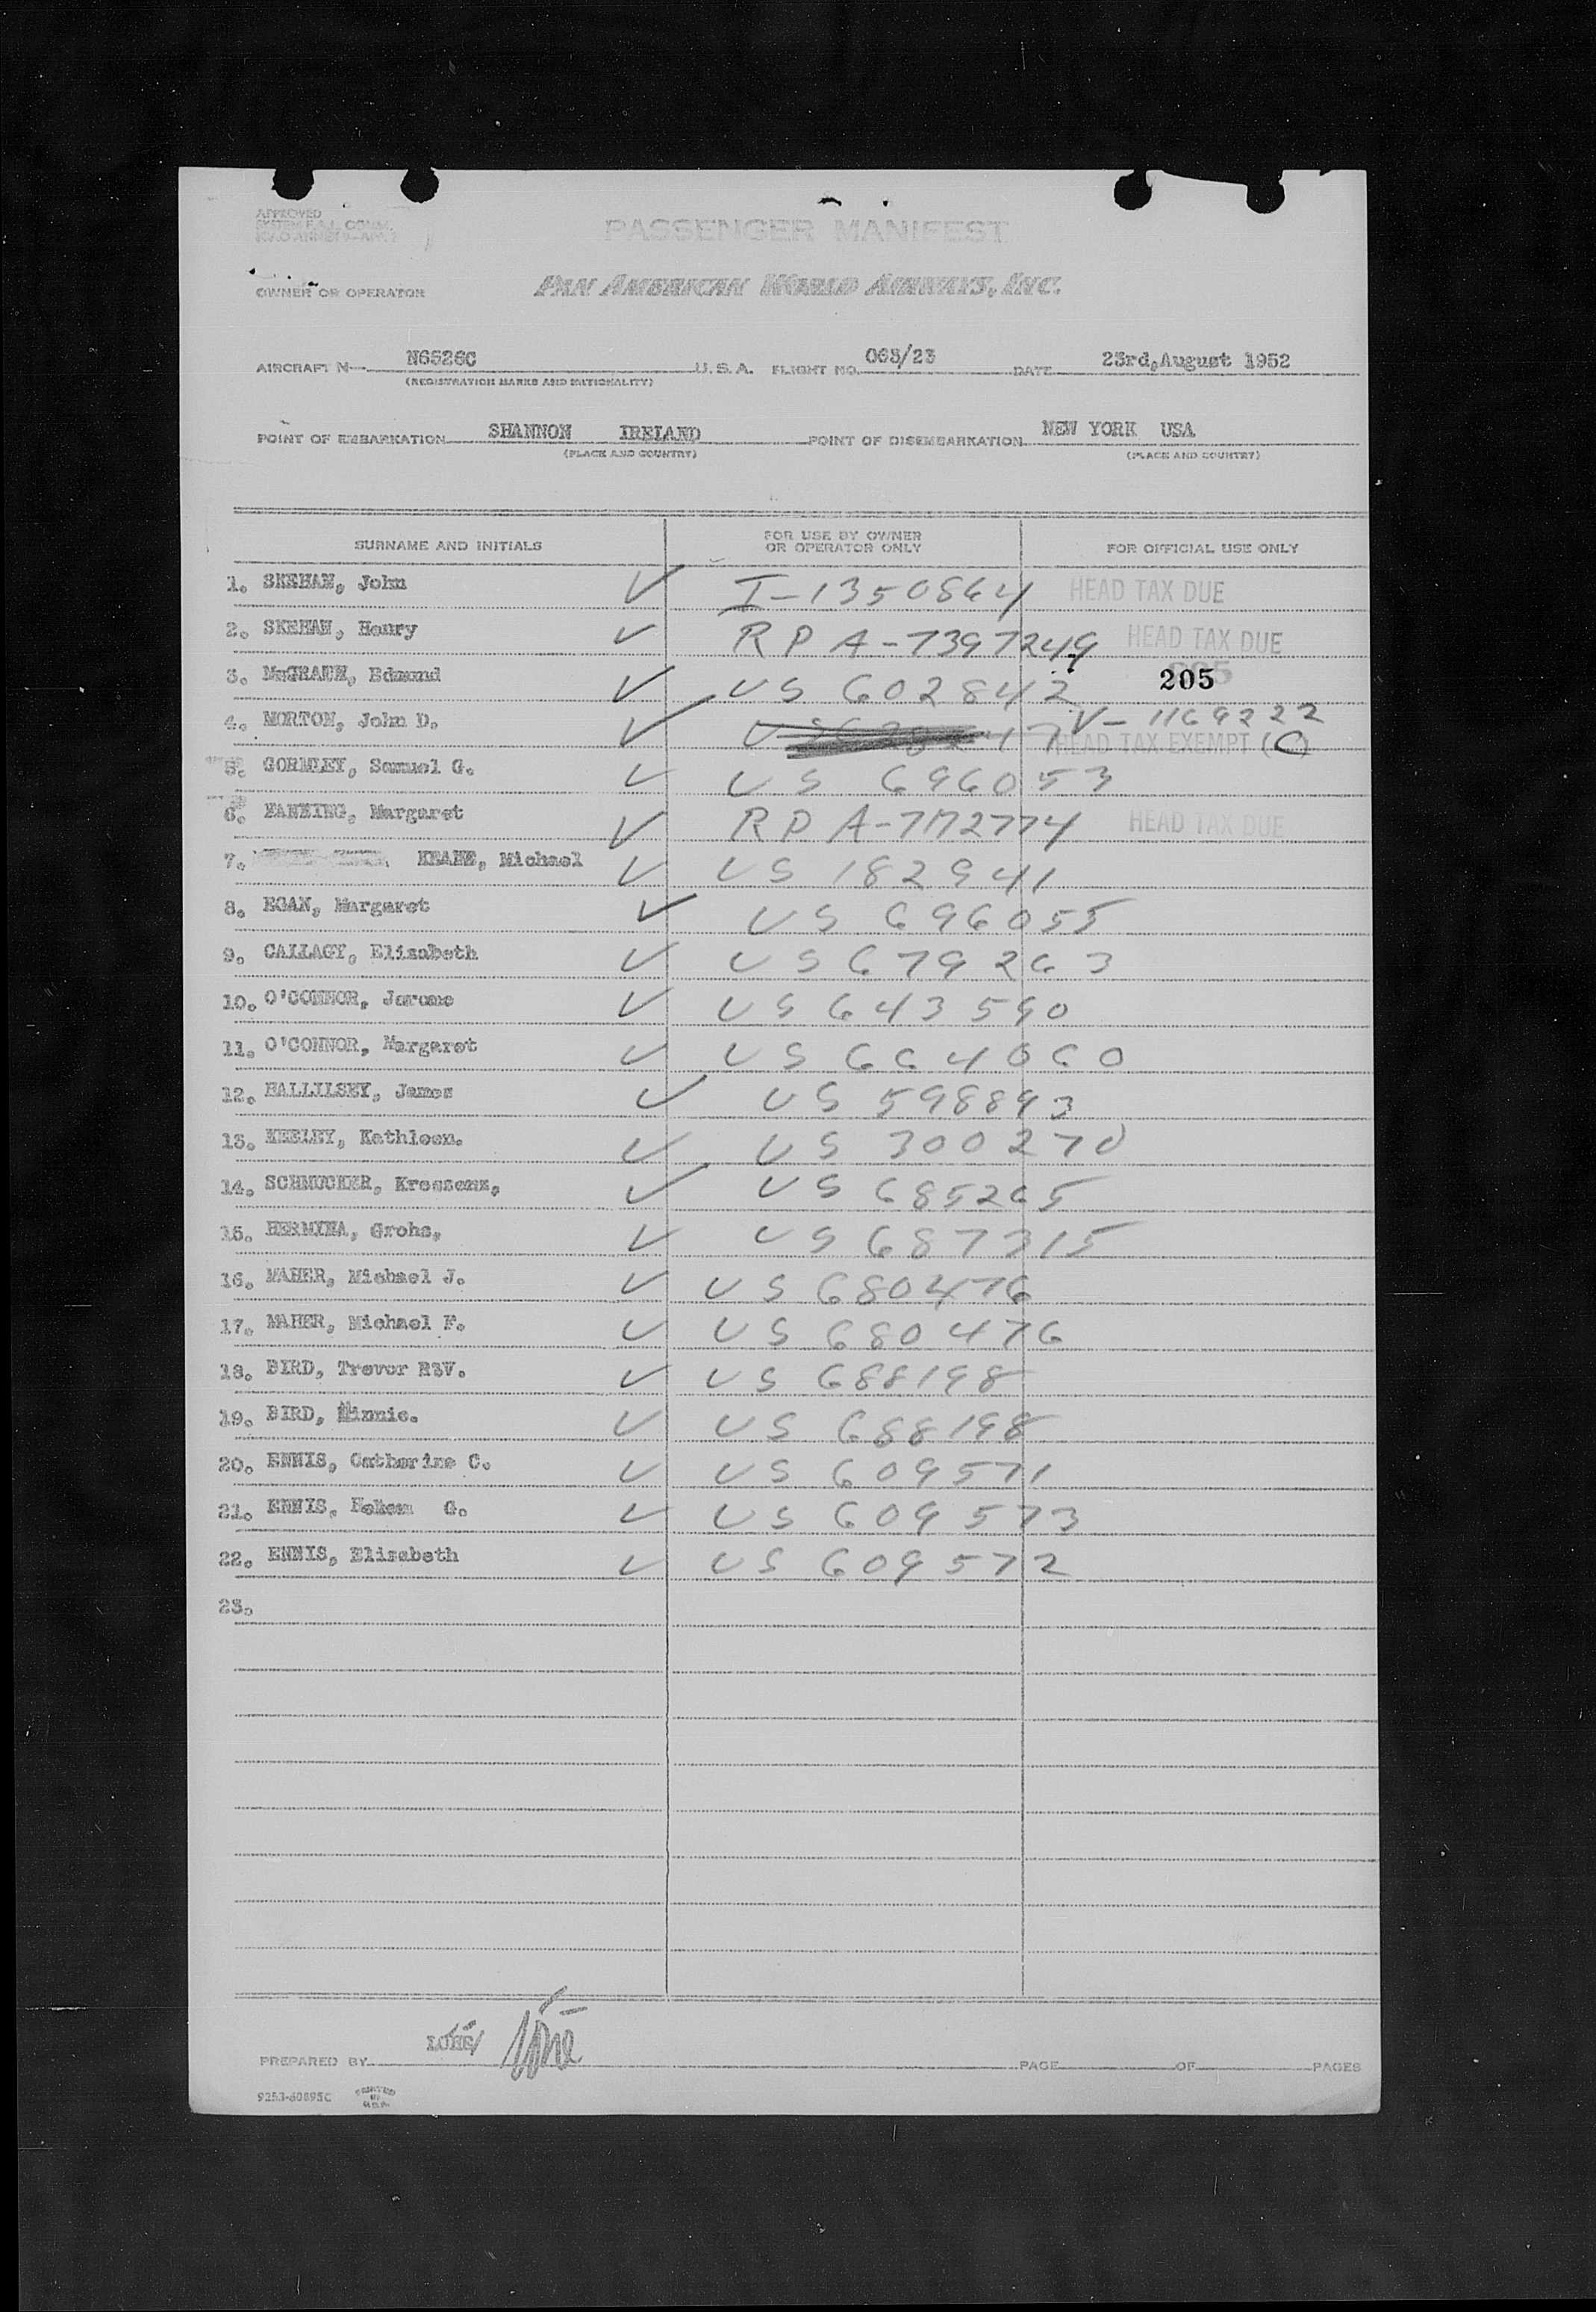 APPROVED
PASSENGER MANIFEST
OWNER OR OPERATOR PAN AMERICAN WORLD AIRWAYS, INC.
AIRCRAFT N N6526C U.S.A. FLIGHT NO. 063/23 DATE 23rd,August 1952
(REGISTRATION MARKS AND NATIONALITY)
POINT OF EMBARKATION SHANNON IRELAND POINT OF DISEMBARKATION NEW YORK USA
(PLACE AND COUNTRY) (PLACE AND COUNTRY)
SURNAME AND INITIALS FOR USE BY OWNER OR OPERATOR ONLY FOR OFFICIAL USE ONLY
1. SKEHAN, John ✓ I-1350864 HEAD TAX DUE
2. SKEHAN, Henry ✓ R P A-7397249 HEAD TAX DUE
3. Edmund ✓ US 602842 205
4. MORTON, John D. ✓ V-1169222 HEAD TAX EXEMPT (C)
5. GORMLEY, Samuel G. ✓ US 696053
6. Margaret ✓ R P A-7172774 HEAD TAX DUE
7. KEANE, Michael ✓ US 182941
8. EGAN, Margaret ✓ US 696055
9. CALLAGY, Elizabeth ✓ US 679263
10. O'CONNOR, Jerome ✓ US 643590
11. O'CONNOR, Margaret ✓ US 664060
12. HALLILSEY, James ✓ US 598893
13. KEELEY, Kathleen. ✓ US 300270
14. SCHMUCKER, Kreszenz, ✓ US 685265
15. HERMINA, Grohs, ✓ US 687315
16. MAHER, Michael J. ✓ US 680476
17. MAHER, Michael F. ✓ US 680476
18. BIRD, Trevor REV. ✓ US 688198
19. BIRD, Minnie. ✓ US 688198
20. ENNIS, Catherine C. ✓ US 609571
21. ENNIS, Helen G. ✓ US 609573
22. ENNIS, Elizabeth ✓ US 609572
23.
PREPARED BY PAGE OF PAGES
9253-60895C PRINTED IN U.S.A.